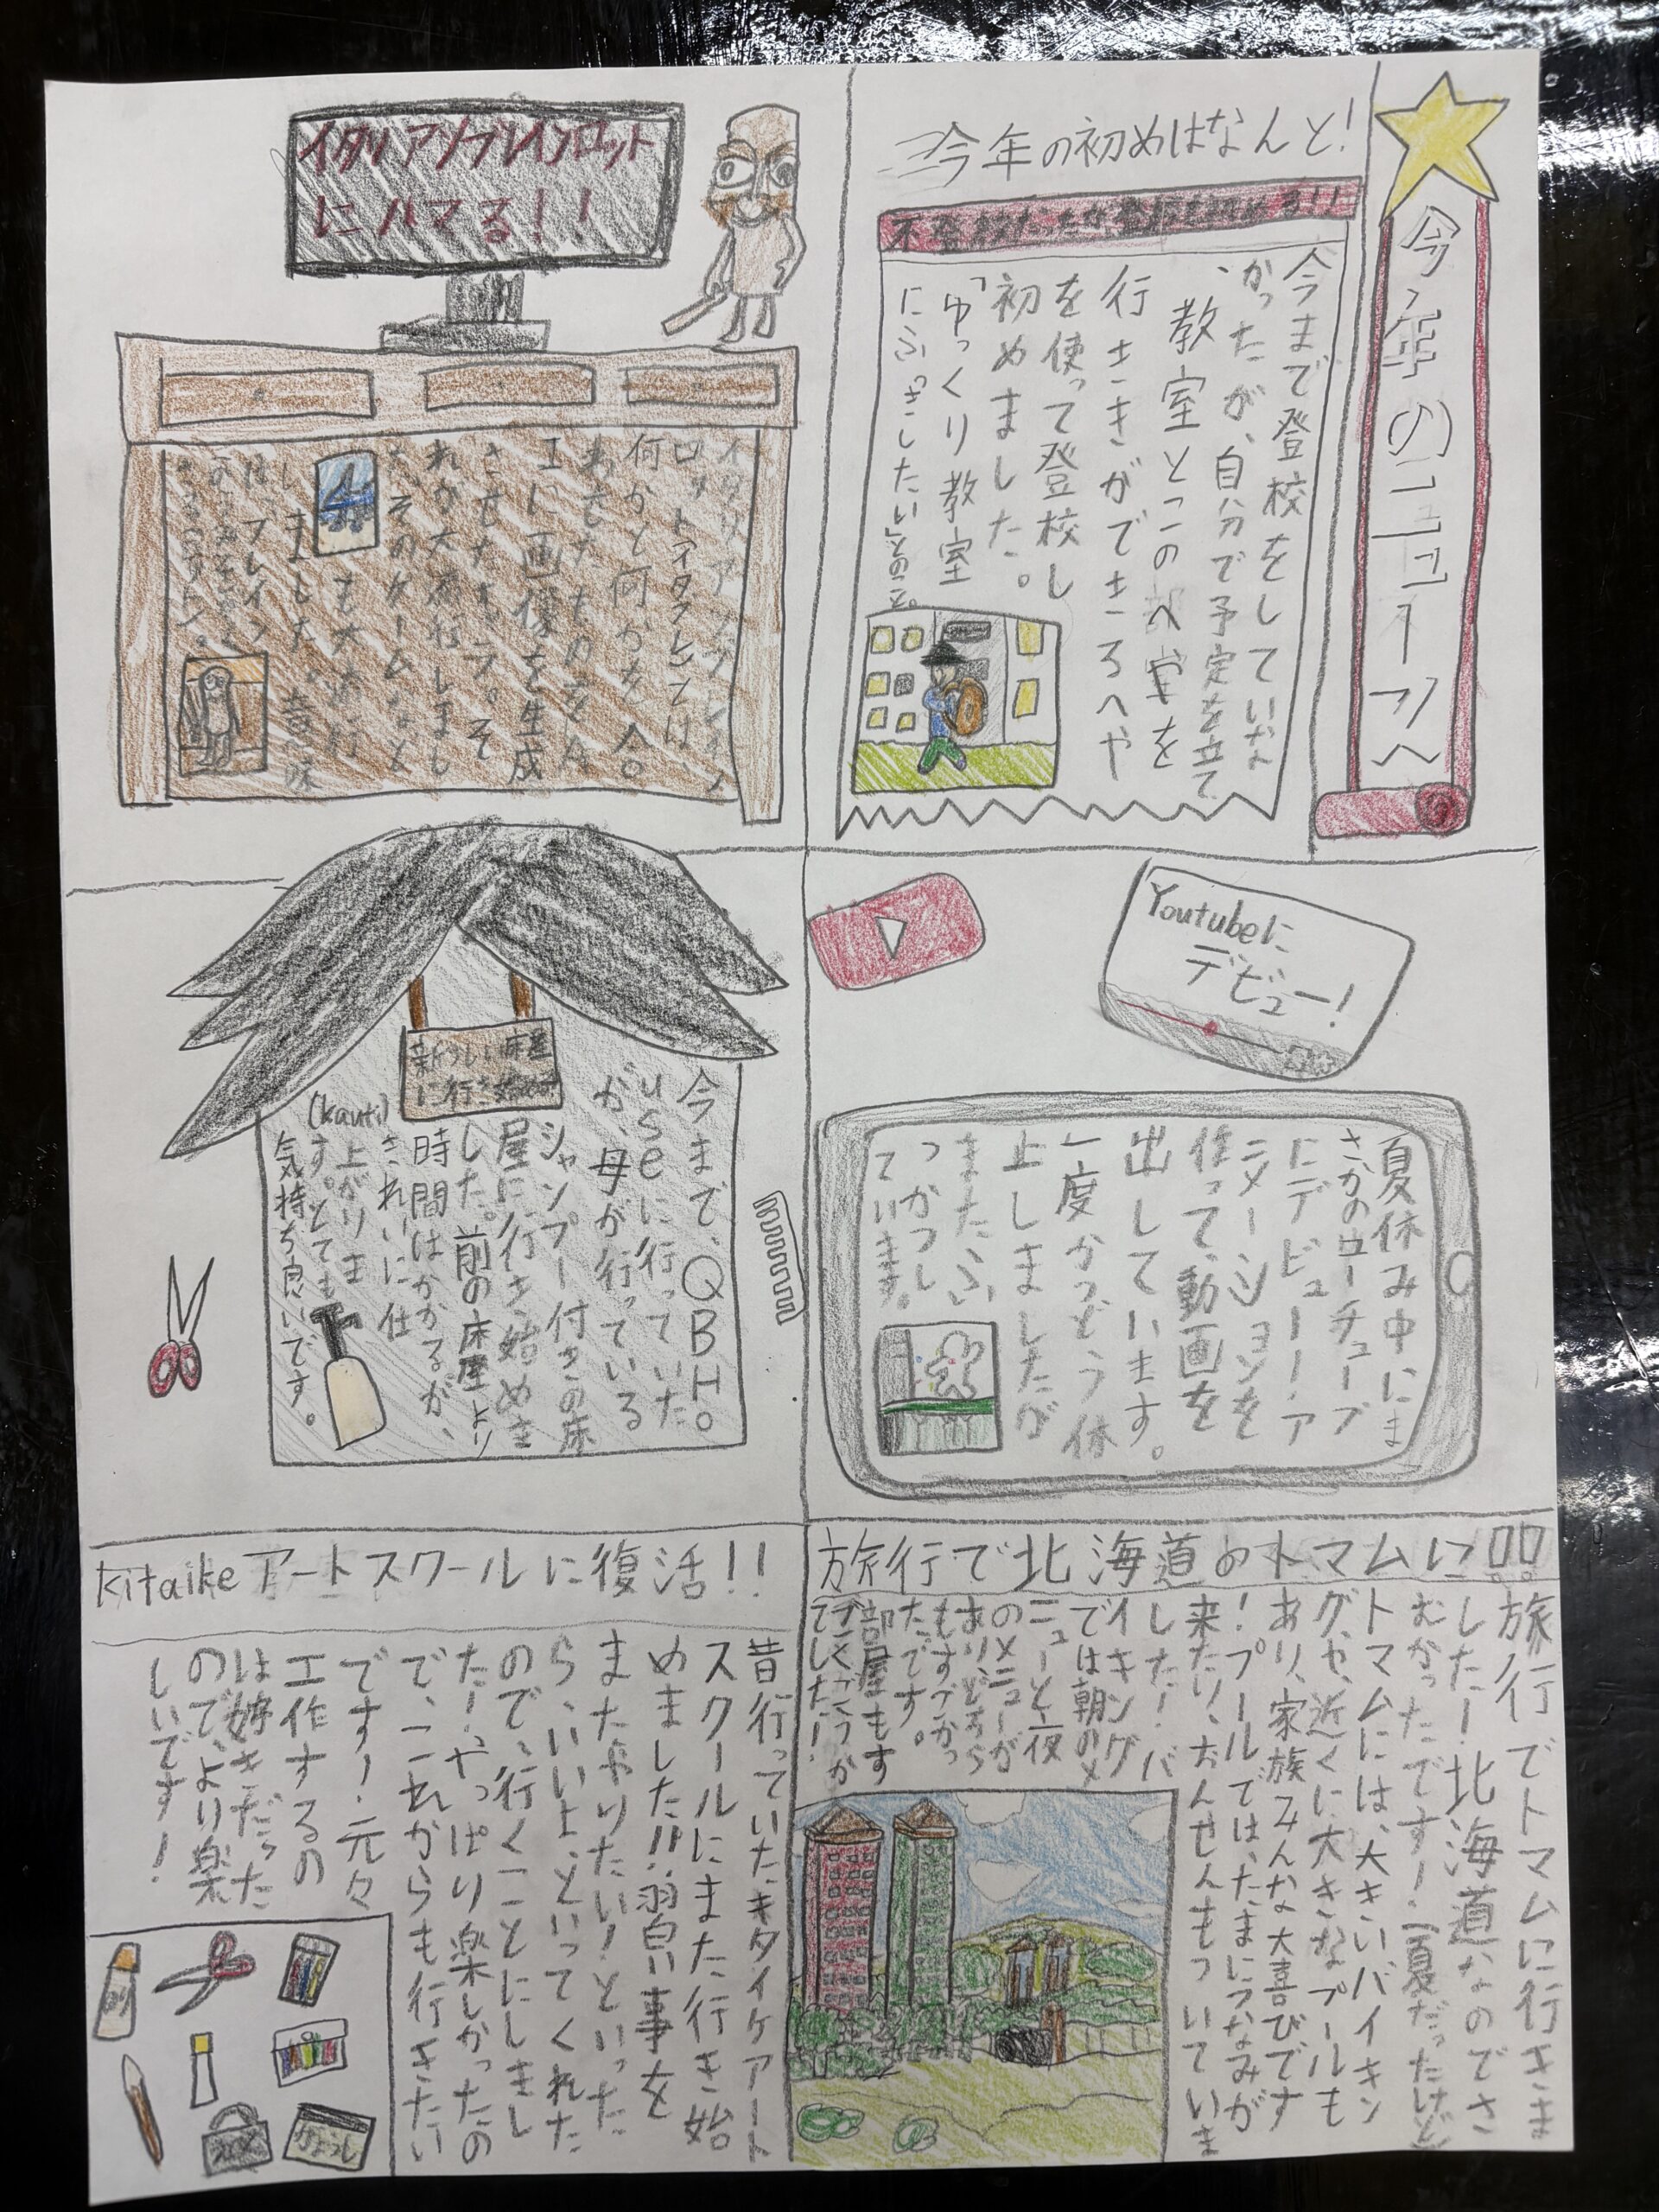 今年のニュースへ
今年の初めはなんと!
不登校だったが登校を初める!!
今まで登校をしていな
かったが、自分で予定を立て、
教室とべつのへ室を
行ききができるへや
を使って登校し
初めました。
「ゆっくり教室
にふっきしたい」とのこと。
イタリアンブレインロット
にハマる!!
イタリアンブレイン
ロット(イタブレ)とは、
何かと何かを人
工に画像を生成
させたキャラ。そ
れが大流行しまし
た。そのゲームなど
も大流行
しました。意味
は、ブレイン
Youtubeに
デビュー!
夏休み中にま
さかのユーチューブ
にデビュー!ア
ニメーションを
作って、動画を
出しています。
一度かつどう休
止しましたが
またふ
っかつし
ています。
新しい床屋
に行き始める
今まで、QBH。
useに行っていた
が、母が行っている
シャンプー付きの床
屋に行き始めま
した。前の床屋より
時間はかかるが、
きれいに仕
上がりま
す。とても
気持ち良いです。
(kauti)
旅行で北海道のトマムに!!
旅行でトマムに行きま
した!北海道なのでさ
むかったです!(夏だったけど)
トマムには、大きいバイキン
グや、近くに大きなプールも
あり、家族みんな大喜びです
!プールでは、たまにつなみが
来たり、おんせんもついていま
した!バ
イキング
では朝のメ
ニューと夜
のメニューが
あり、どちら
もすごかっ
たです。
部屋もす
ごくごうか
でした!
kitaikeアートスクールに復活!!
昔行っていたキタイケアート
スクールにまた行き始
めました!!習い事を
またやりたい!といった
ら、いいよ、といってくれた
ので、行くことにしまし
た!やっぱり楽しかったの
で、これからも行きたい
です!元々
工作するの
は好きだった
ので、より楽
しいです!